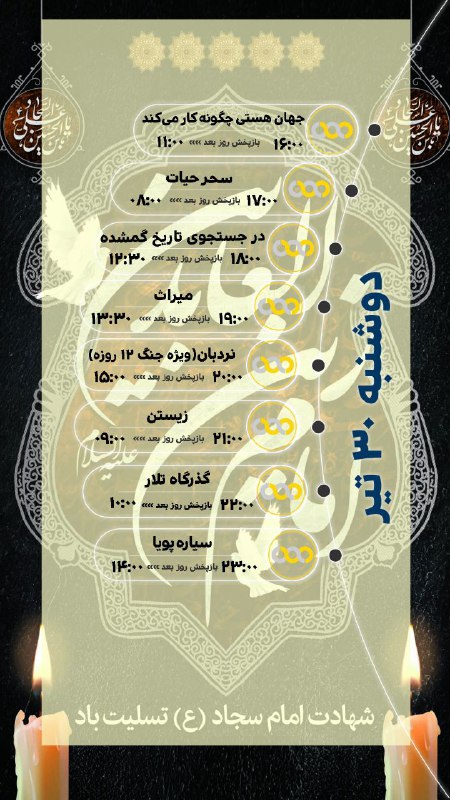 جهان هستی چگونه کار می‌کند
۱۶:۰۰ بازپخش روز بعد »»» ۱۱:۰۰
سحر حیات
۱۷:۰۰ بازپخش روز بعد »»» ۰۸:۰۰
در جستجوی تاریخ گمشده
۱۸:۰۰ بازپخش روز بعد »»» ۱۲:۳۰
میراث
۱۹:۰۰ بازپخش روز بعد »»» ۱۳:۳۰
نردبان(ویژه جنگ ۱۲ روزه)
۲۰:۰۰ بازپخش روز بعد »»» ۱۵:۰۰
زیستن
۲۱:۰۰ بازپخش روز بعد »»» ۰۹:۰۰
گذرگاه تلار
۲۲:۰۰ بازپخش روز بعد »»» ۱۰:۰۰
سیاره پویا
۲۳:۰۰ بازپخش روز بعد »»» ۱۴:۰۰
دوشنبه ۳۰ تیر
امام زین العابدین
علیه السلام
شهادت امام سجاد (ع) تسلیت باد